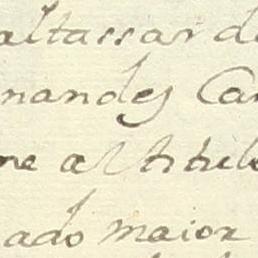 altassar d
nandes Ca
ne al titul
ado maior